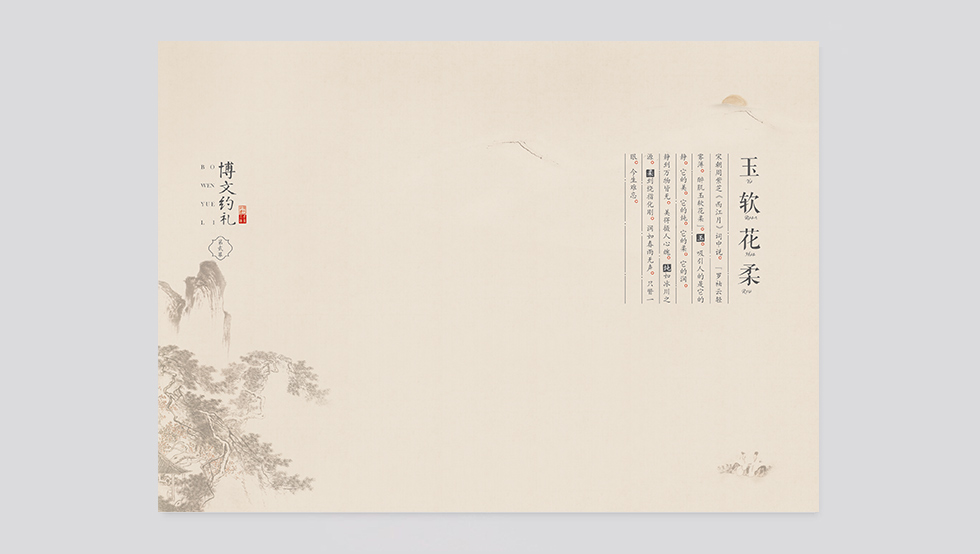 玉软花柔
Yu
Ruan
Hua
Rou
宋朝周紫芝《西江月》词中说。「罗袖云轻
雾薄。醉肌玉软花柔」。玉。吸引人的是它的
静。它的美。它的纯。它的柔。它的润。
静到万物皆无。美得摄人心魄。纯如冰川之
源。柔到绕指化刚。润如春雨无声。只瞥一
眼。今生难忘。
博文约礼
BO
WEN
YUE
LI